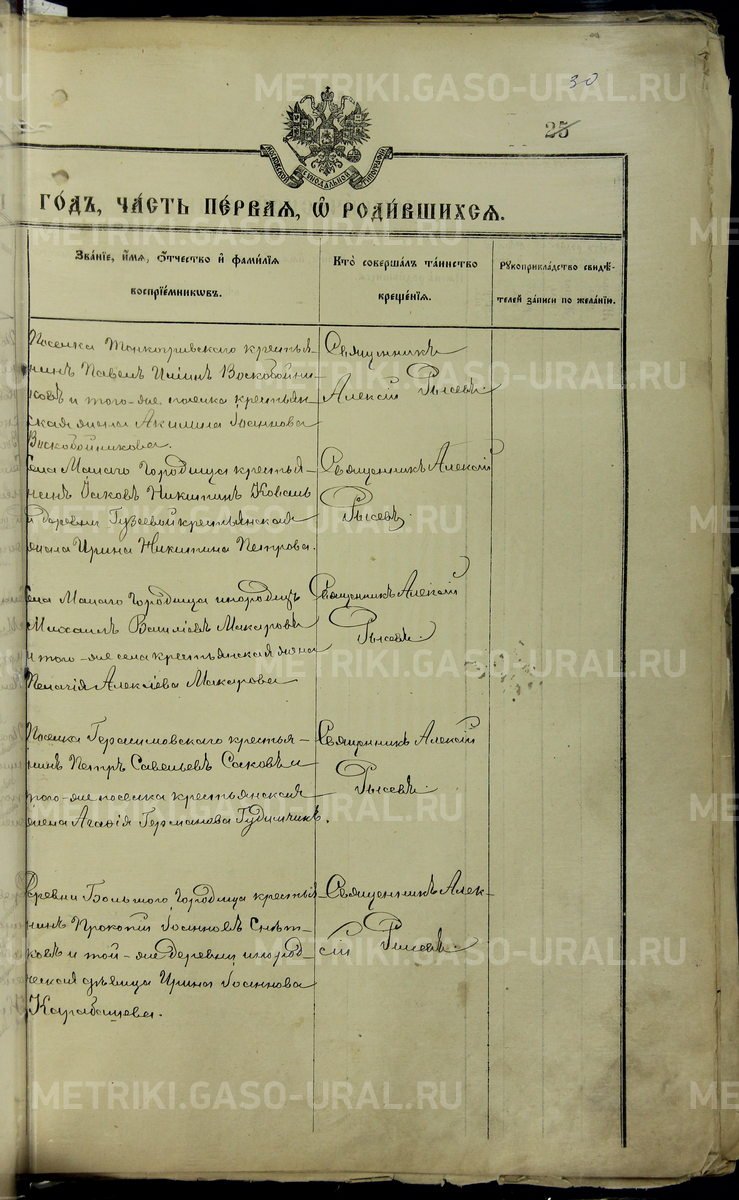 30
25
МОСКОВСКОЙ СѴНОДАЛЬНОЙ ТИПОГРАФІИ
ГОДЪ, ЧАСТЬ ПЕРВАЯ, Ѡ РОДИВШИХСЯ.
Званіе, имя, отчество и фамилія воспріемниковъ.
Кто совершалъ таинство крещенія.
Рукоприкладство свидѣтелей записи по желанію.
Поселка Тонкогривского крестья-
нинъ Павелъ Иліинъ Воскобойни-
ковъ и того-же поселка крестьян-
ская жена Акилина Іоаннова
Воскобойникова.
Священникъ
Алексій Рысевъ.
Села Малаго Городища крестья-
нинъ Іаковъ Никитинъ Коваль
и деревни Гузеевой крестьянская
жена Ирина Никитина Петрова.
Священникъ Алексій
Рысевъ.
Села Малаго Городища инородецъ
Михаилъ Василіевъ Макаровъ
и того-же села крестьянская жена
Пелагія Алексіева Макарова
Священникъ Алексій
Рысевъ.
Поселка Герасимовскаго крестья-
нинъ Петръ Савельевъ Саковъ и
того-же поселка крестьянская
жена Агафія Германова Гудимчикъ.
Священникъ Алексій
Рысевъ.
Деревни Большого Городища крестья-
нинъ Прокопій Іоанновъ Снѣт-
ковъ и той-же деревни инород-
ческая дѣвица Ирина Іоаннова
Карабашева.
Священникъ Алек-
сій Рысевъ.
METRIKI.GASO-URAL.RU